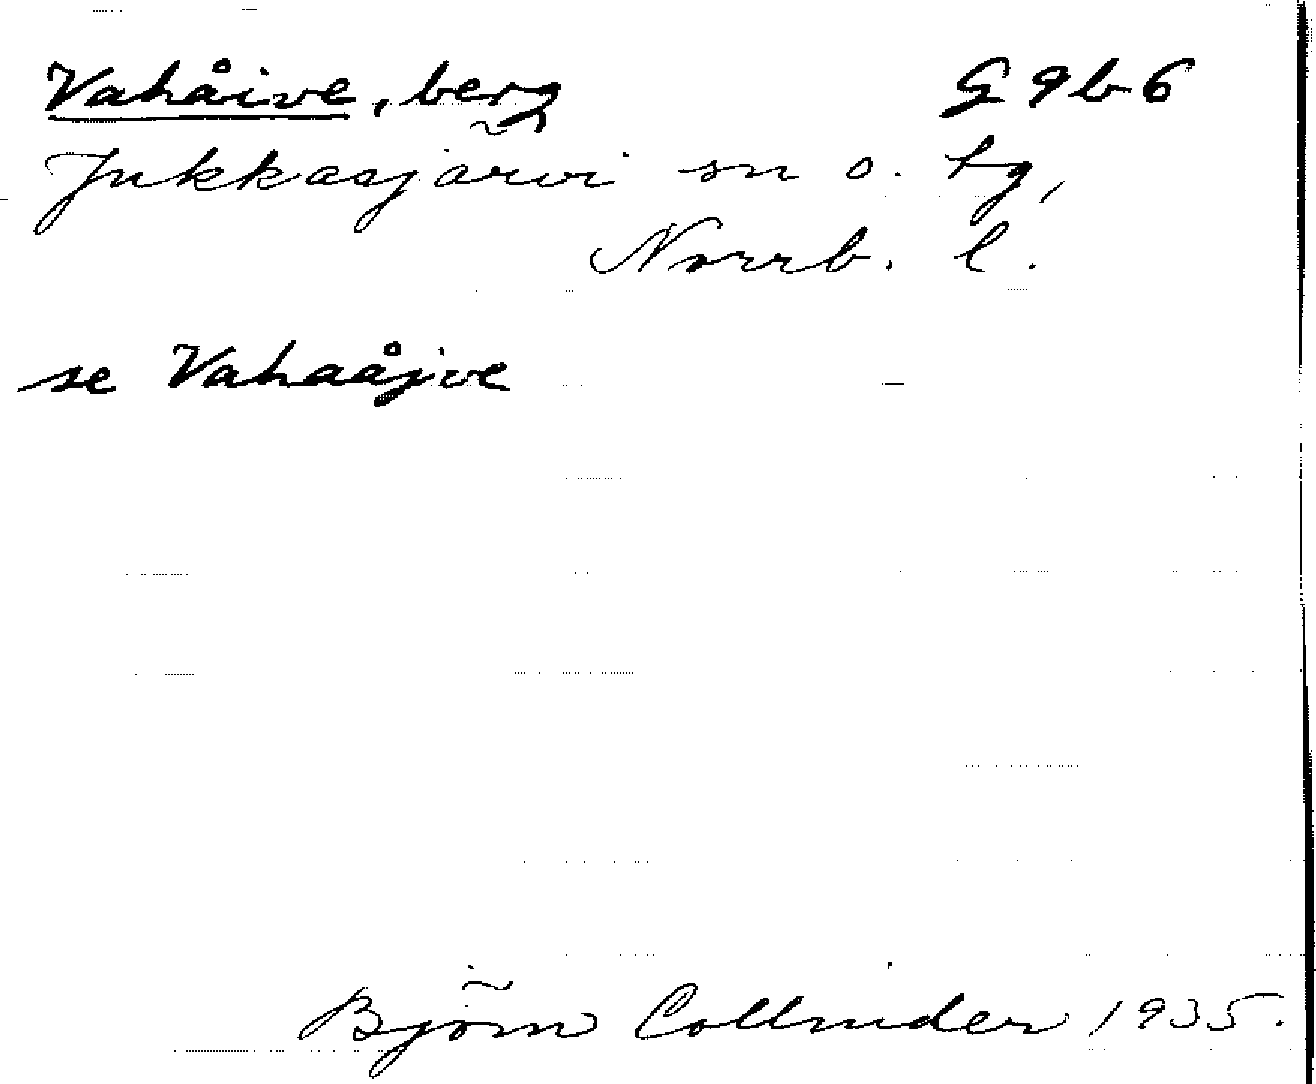 Vahåive, berg G 9 b 6
Jukkasjärvi sn o. tg,
Norrb. l.
se Vahaåjve
Björn Collinder 1935.